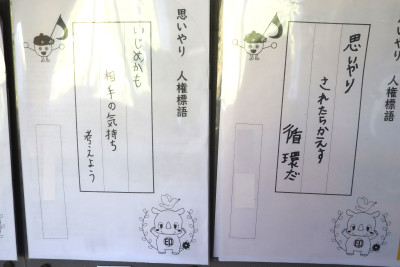 思いやり 人権標語
思いやり
されたらかえす
循環だ
印
思いやり 人権標語
いじめかも
相手の気持ち
考えよう
印
思いやり 人権標語